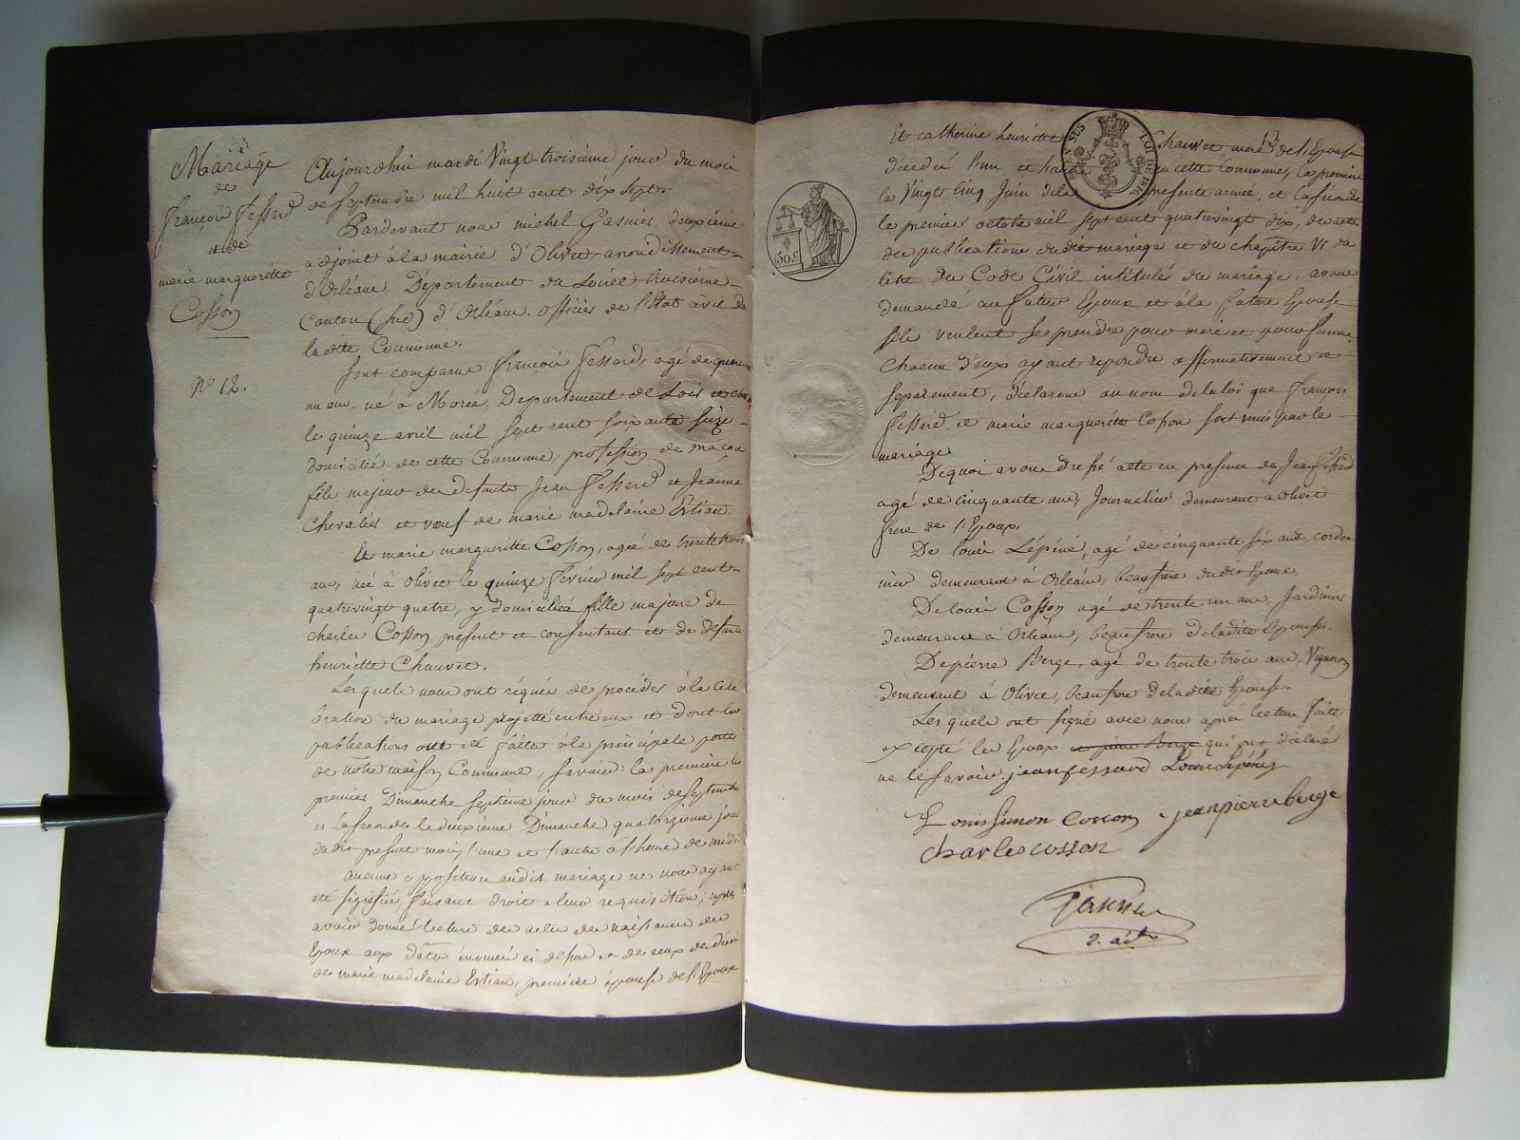 Mariage
de
françois fessard
et de
marie margueritte
Cosson
N° 12.
Aujourdhui mardi Vingt troisieme jour du mois
de Septembre mil huit cent dix Sept.
Pardevant nous michel Gasnier, deuxieme
adjoint à la mairie d'Olivet arrondissement
d'Orléans, Département du Loiret huitieme
Canton (Sud) d'Orléans. officier de l'état civil de
ladite Commune.
Sont comparus françois fessard, agé de quarante
un ans, né à Morée, Departement de Loir et cher
le quinze avril mil Sept cent Soixante Seize
domicilié de cette Commune, profession de maçon
fils majeur de defunts Jean fessard et Jeanne
Chevalier et veuf de marie madelaine
Et marie margueritte Cosson, agée de trente trois
ans, née à Olivet le quinze fevrier mil Sept cent
quatrevingt quatre, y domiciliée fille majeure de
charles Cosson present et consentant et de defunte
henriette Chauvet.
Lesquels nous ont requis de procéder à la célé
bration du mariage projetté entre eux et dont les
publications ont été faites à la principale porte
de notre maison Commune, savoir la première le
premier Dimanche Septième jour du mois de Septembre
et la seconde le deuxième Dimanche quatorzieme jour
dudit present mois, l'une et l'autre à l'heure de midi
aucune opposition audit mariage ne nous ayant
été signifiée, faisant droit à leur requisition, après
avoir donné lecture des actes de naissance des
Epoux aux dates énoncées ci dessus et de ceux de décès
de marie madelaine premiere épouse de l'Epoux
Et catherine henriette Chauvet mere de l'Epouse
décedés l'une et l'autre en cette Commune, la premiere
le Vingt Cinq Juin de la presente année, et la seconde
le premier octobre mil Sept cent quatrevingt dix, de l'acte
de publications dudit mariage et du chapitre VI du
titre du Code Civil intitulé du mariage. avons
demandé au futur Epoux et à la future Epouse
s'ils veulent se prendre pour mari et pour femme
chacun d'eux ayant repondu affirmativement et
separement, déclarons au nom de la loi que françois
fessard et marie margueritte Cosson sont unis par le
mariage
De quoi avons dressé acte en presence de Jean fessard
agé de cinquante ans, Journalier demeurant à Olivet
frere de l'Epoux.
De louis Lépine, agé de cinquante six ans, cordon
nier demeurant à Orléans, beaufrere dudit Epoux.
De louis Cosson agé de trente un ans, Jardinier
demeurant à Orleans, beaufrere de ladite Epouse.
De pierre Berge, agé de trente trois ans, Vigneron
demeurant à Olivet, beaufrere de ladite Epouse.
Lesquels ont signé avec nous après lecture faite
excepté les Epoux et pierre Berge qui ont déclaré
ne le savoir. jean fessard Louis Lépine
Louis Simon Cosson jean pierre berge
charles cosson
Gasnier
2. adjt
50 C